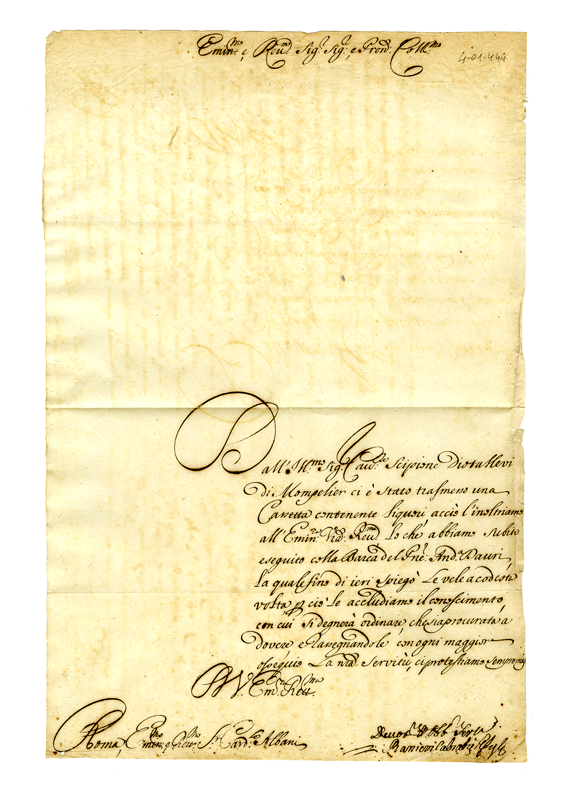 Emin.mo e Reu.mo Sig.r Sig.r, e Pron. Coll.mo
4-01-444
Dall' Ill.mo Sig. Cau.re Scipione Diotallevi
di Mompelier ci è stato trasmesso una
Caretta continente liquori acciò l'inoltriamo
all' Emin.za V.ra Reu.ma Lo che abbiamo subito
eseguito colla Barca del And.a
La quale fino di ieri spiegò Le vele a codesta
volta, p ciò Le accludiamo il conoscimento,
con cui si degnerà ordinare, che sia procurata a
dovere e Rasegnandole con ogni maggior
ossequio La n.ra Servitù, ci protestiamo sempre
V. Em.za Reu.ma
Roma, Em.mo e S.r Card.le Albani
Deuot.i Obb. Seru.i
Ranieri